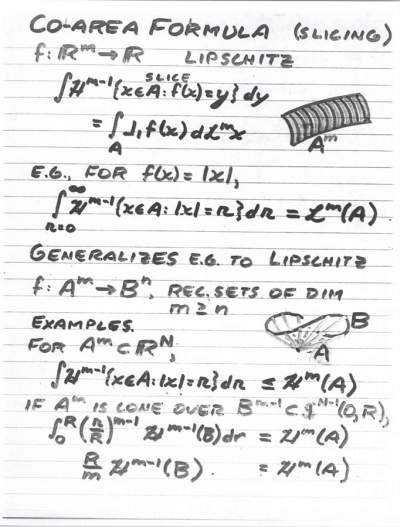 CO-AREA FORMULA (SLICING)
f: ℝᵐ→ℝ LIPSCHITZ
SLICE
∫ℋᵐ⁻¹{x∈A: f(x)=y}dy
= ∫_A J₁f(x)dℒᵐx
Aᵐ
E.G., FOR f(x)=|x|,
∫_{r=0}^∞ ℋᵐ⁻¹{x∈A: |x|=r}dr = ℒᵐ(A)
GENERALIZES E.G. TO LIPSCHITZ
f: Aᵐ→Bⁿ, REC. SETS OF DIM
m≥n
EXAMPLES.
B
A
FOR Aᵐ⊂ℝᴺ,
∫ℋᵐ⁻¹{x∈A: |x|=r}dr ≤ ℋᵐ(A)
IF Aᵐ IS CONE OVER Bᵐ⁻¹⊂𝒮ᴺ⁻¹(0,R),
∫₀ᴿ(r/R)ᵐ⁻¹ ℋᵐ⁻¹(B)dr = ℋᵐ(A)
R/m ℋᵐ⁻¹(B). = ℋᵐ(A)